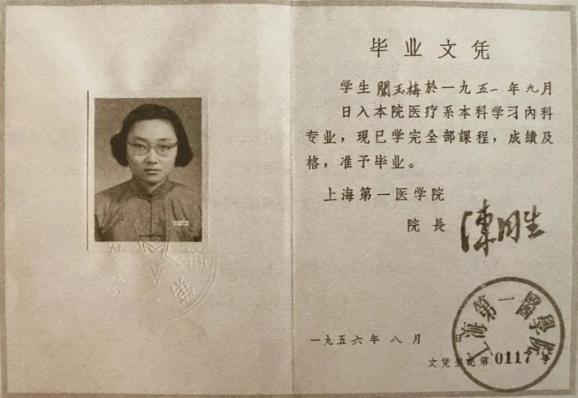 毕业文凭
学生闻玉梅於一九五一年九月
日入本院医疗系本科学习內科
专业，现已学完全部課程，成績及
格，准予毕业。
上海第一医学院
院長 陳同生
一九五六年八月 日
文凭登记第0117
上海第一醫學院